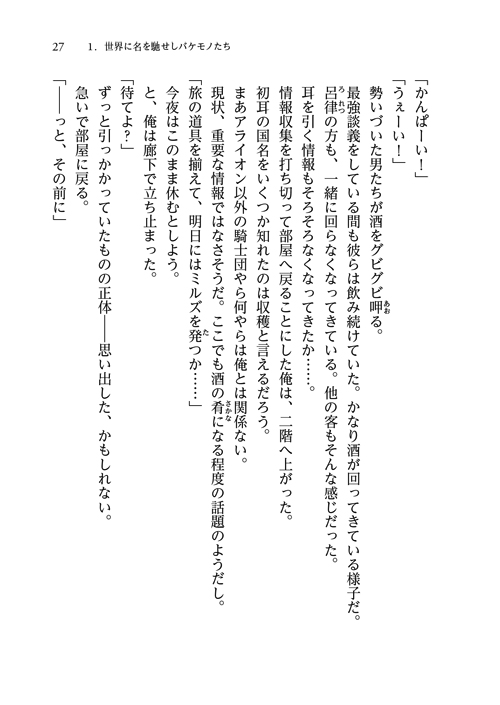 27　1．世界に名を馳せしバケモノたち
「かんぱーい！」
「うぇーい！」
勢いづいた男たちが酒をグビグビ呷る。
最強談義をしている間も彼らは飲み続けていた。かなり酒が回ってきている様子だ。
呂律の方も、一緒に回らなくなってきている。他の客もそんな感じだった。
耳を引く情報もそろそろなくなってきたか……。
情報収集を打ち切って部屋へ戻ることにした俺は、二階へ上がった。
初耳の国名をいくつか知れたのは収穫と言えるだろう。
まあアライオン以外の騎士団やら何やらは俺とは関係ない。
現状、重要な情報ではなさそうだ。ここでも酒の肴になる程度の話題のようだし。
「旅の道具を揃えて、明日にはミルズを発つか……」
今夜はこのまま休むとしよう。
と、俺は廊下で立ち止まった。
「待てよ？」
ずっと引っかかっていたものの正体――思い出した、かもしれない。
急いで部屋に戻る。
「――っと、その前に」